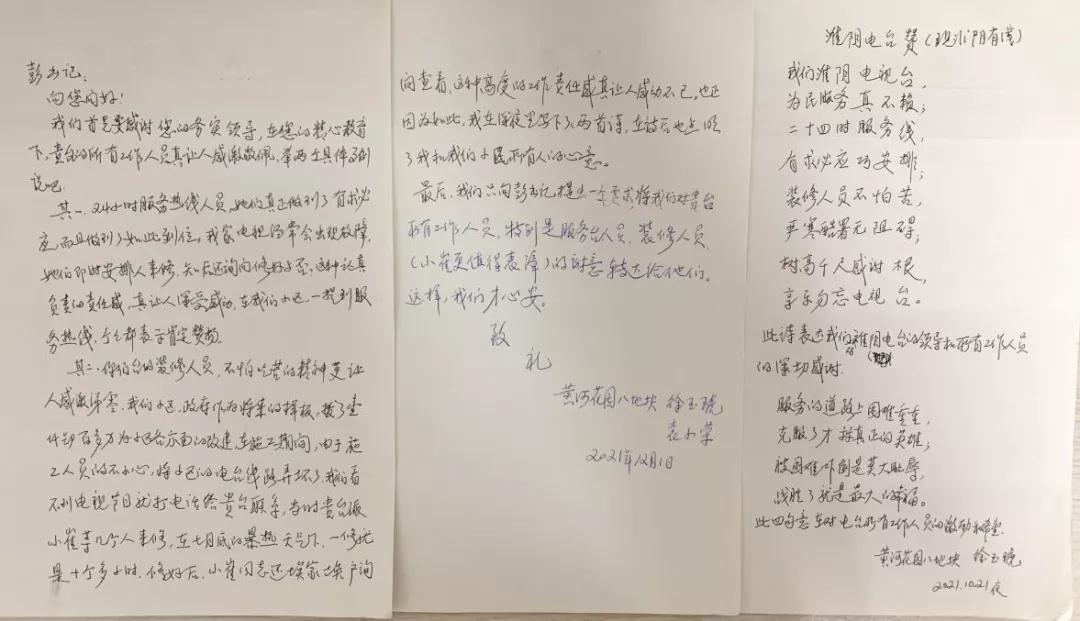 彭书记：
向您问好！
我们首先要感谢您的务实领导，在您的精心教育
下，贵台的所有工作人员真让人感激敬佩，举两个具体事例
说吧
其一、24小时服务热线人员，她们真正做到了有求必
应，而且做到了如此到位，我家电视经常会出现故障，
她们即时安排人来修，然后还询问修好了否，这种认真
负责的责任感，真让人深受感动，在我们小区，一提到服
务热线，个个都表示肯定赞扬。
其二、你们台的装修人员，不怕吃苦的精神更让
人感激涕零，我们小区，政府作为将来的样板，拨了
百多万为小区各方面的改建，在施工期间，由于施
工人员的不小心，将小区的电台线路弄坏了，我们看
不到电视节目就打电话给贵台联系，当时贵台派
小崔等几个人来修，在七月底的暴热天气下，一修就
是十个多小时，修好后，小崔同志还挨家挨户询
问查看，这种高度的工作责任感真让人感动不已，也正
因为如此，我在深夜里写下了两首诗，在诗后也点明
了我和我们小区所有人的心意。
最后，我们只向彭书记提出一个要求，将我们对贵台
所有工作人员，特别是服务台人员，装修人员，
（小崔更值得表漳）的谢意转达给他们。
这样，我们才心安。
致
礼
黄河花园八地块 徐玉琥
袁小荣
2021年12月1日
淮阴电台赞（现淮阴有线）
我们淮阴电视台，
为民服务真不赖；
二十四时服务线，
有求必应巧安排；
装修人员不怕苦，
严寒酷暑无阻碍；
树高千尺感谢根，
享乐勿忘电视台。
此诗表达我们对淮阴电台的领导和所有工作人员
的深切感谢.
服务的道路上困难重重，
克服了才称真正的英雄；
被困难吓倒是莫大耻辱，
战胜了就是最大的幸福。
此四句意在对电台所有工作人员的激励和希望.
黄河花园八地块 徐玉琥
2021.10.21夜